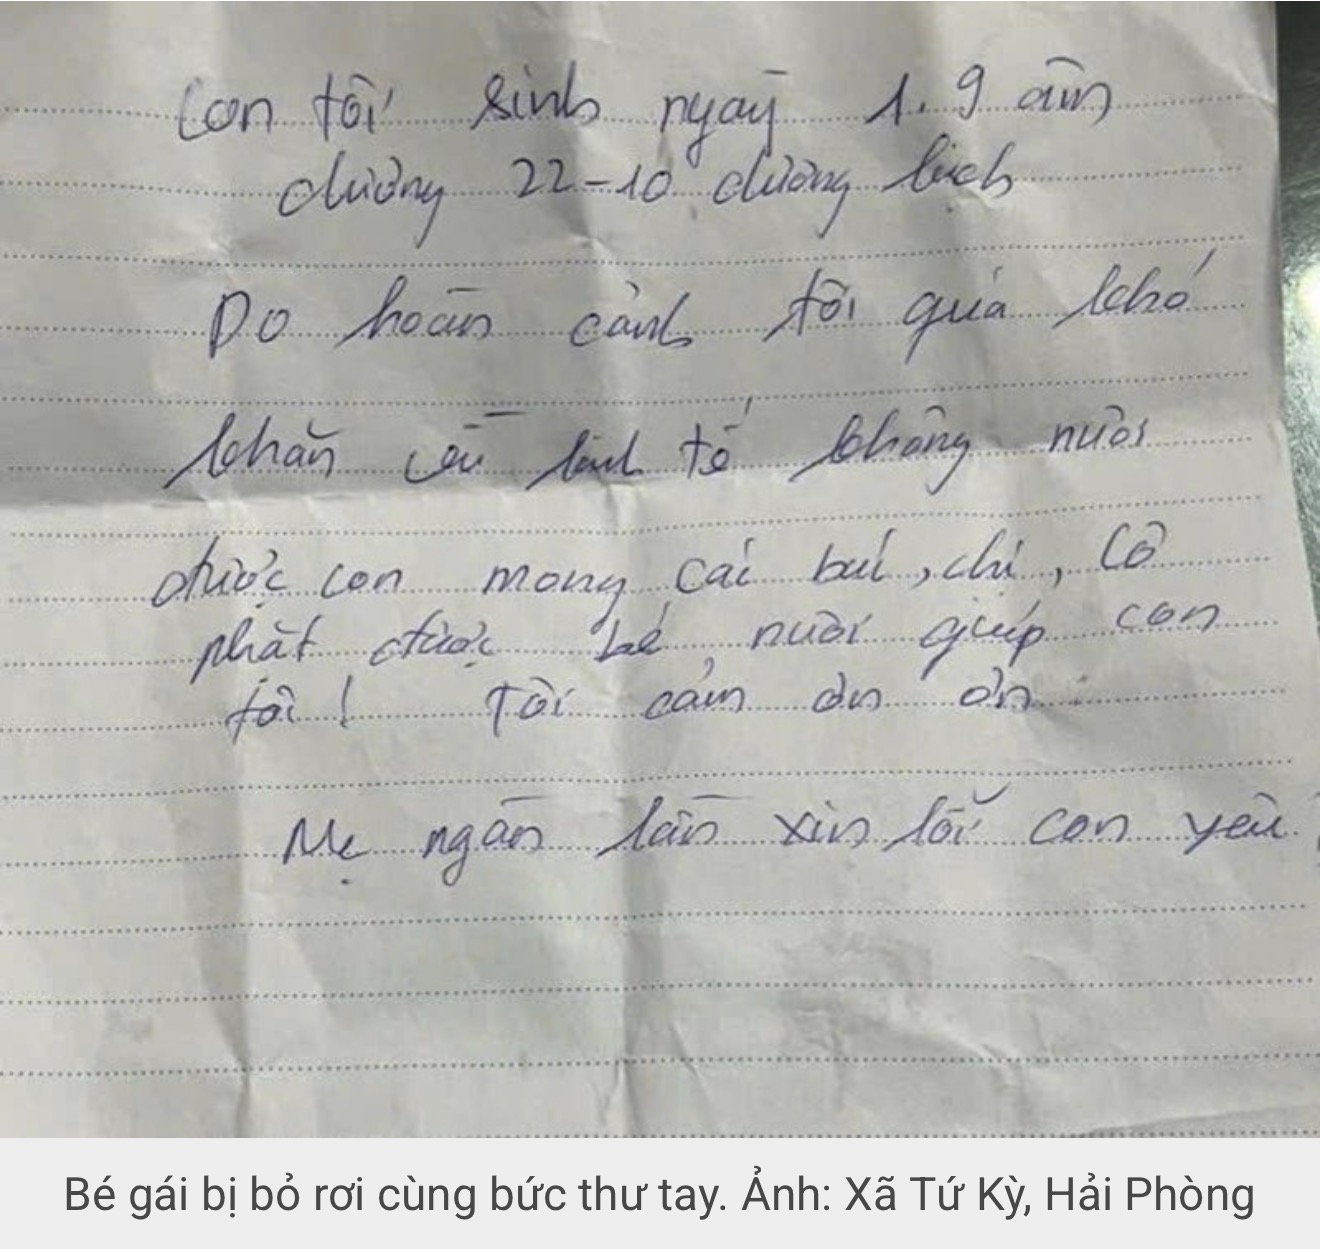 Con tôi sinh ngày 1.9 âm
dương 22-10 dương lịch
Do hoàn cảnh tôi quá khó
khăn về kinh tế không nuôi
được con mong các bác, chị, cô
nhặt được bé nuôi giúp con
tôi! Tôi cảm ơn ơn
Mẹ ngàn lần xin lỗi con yêu
Bé gái bị bỏ rơi cùng bức thư tay. Ảnh: Xã Tứ Kỳ, Hải Phòng